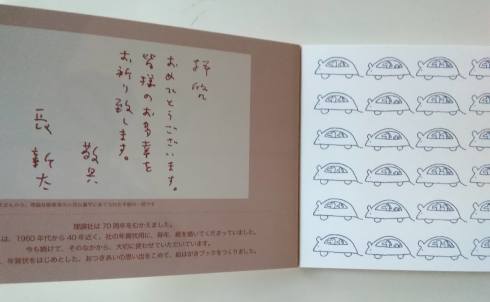 拝啓
おめでとうございます。
皆様のお多幸を
お祈り致します。
敬具
長新太
理論社は70周年をむかえました。
は、1960年代から40年近く、社の年賀状用に、毎年、絵を描いてくださっていました。
今も続けて、そのなかから、大切に使わせていただいています。
年賀状をはじめとした、おつきあいの思い出をこめて、絵はがきブックをつくりました。